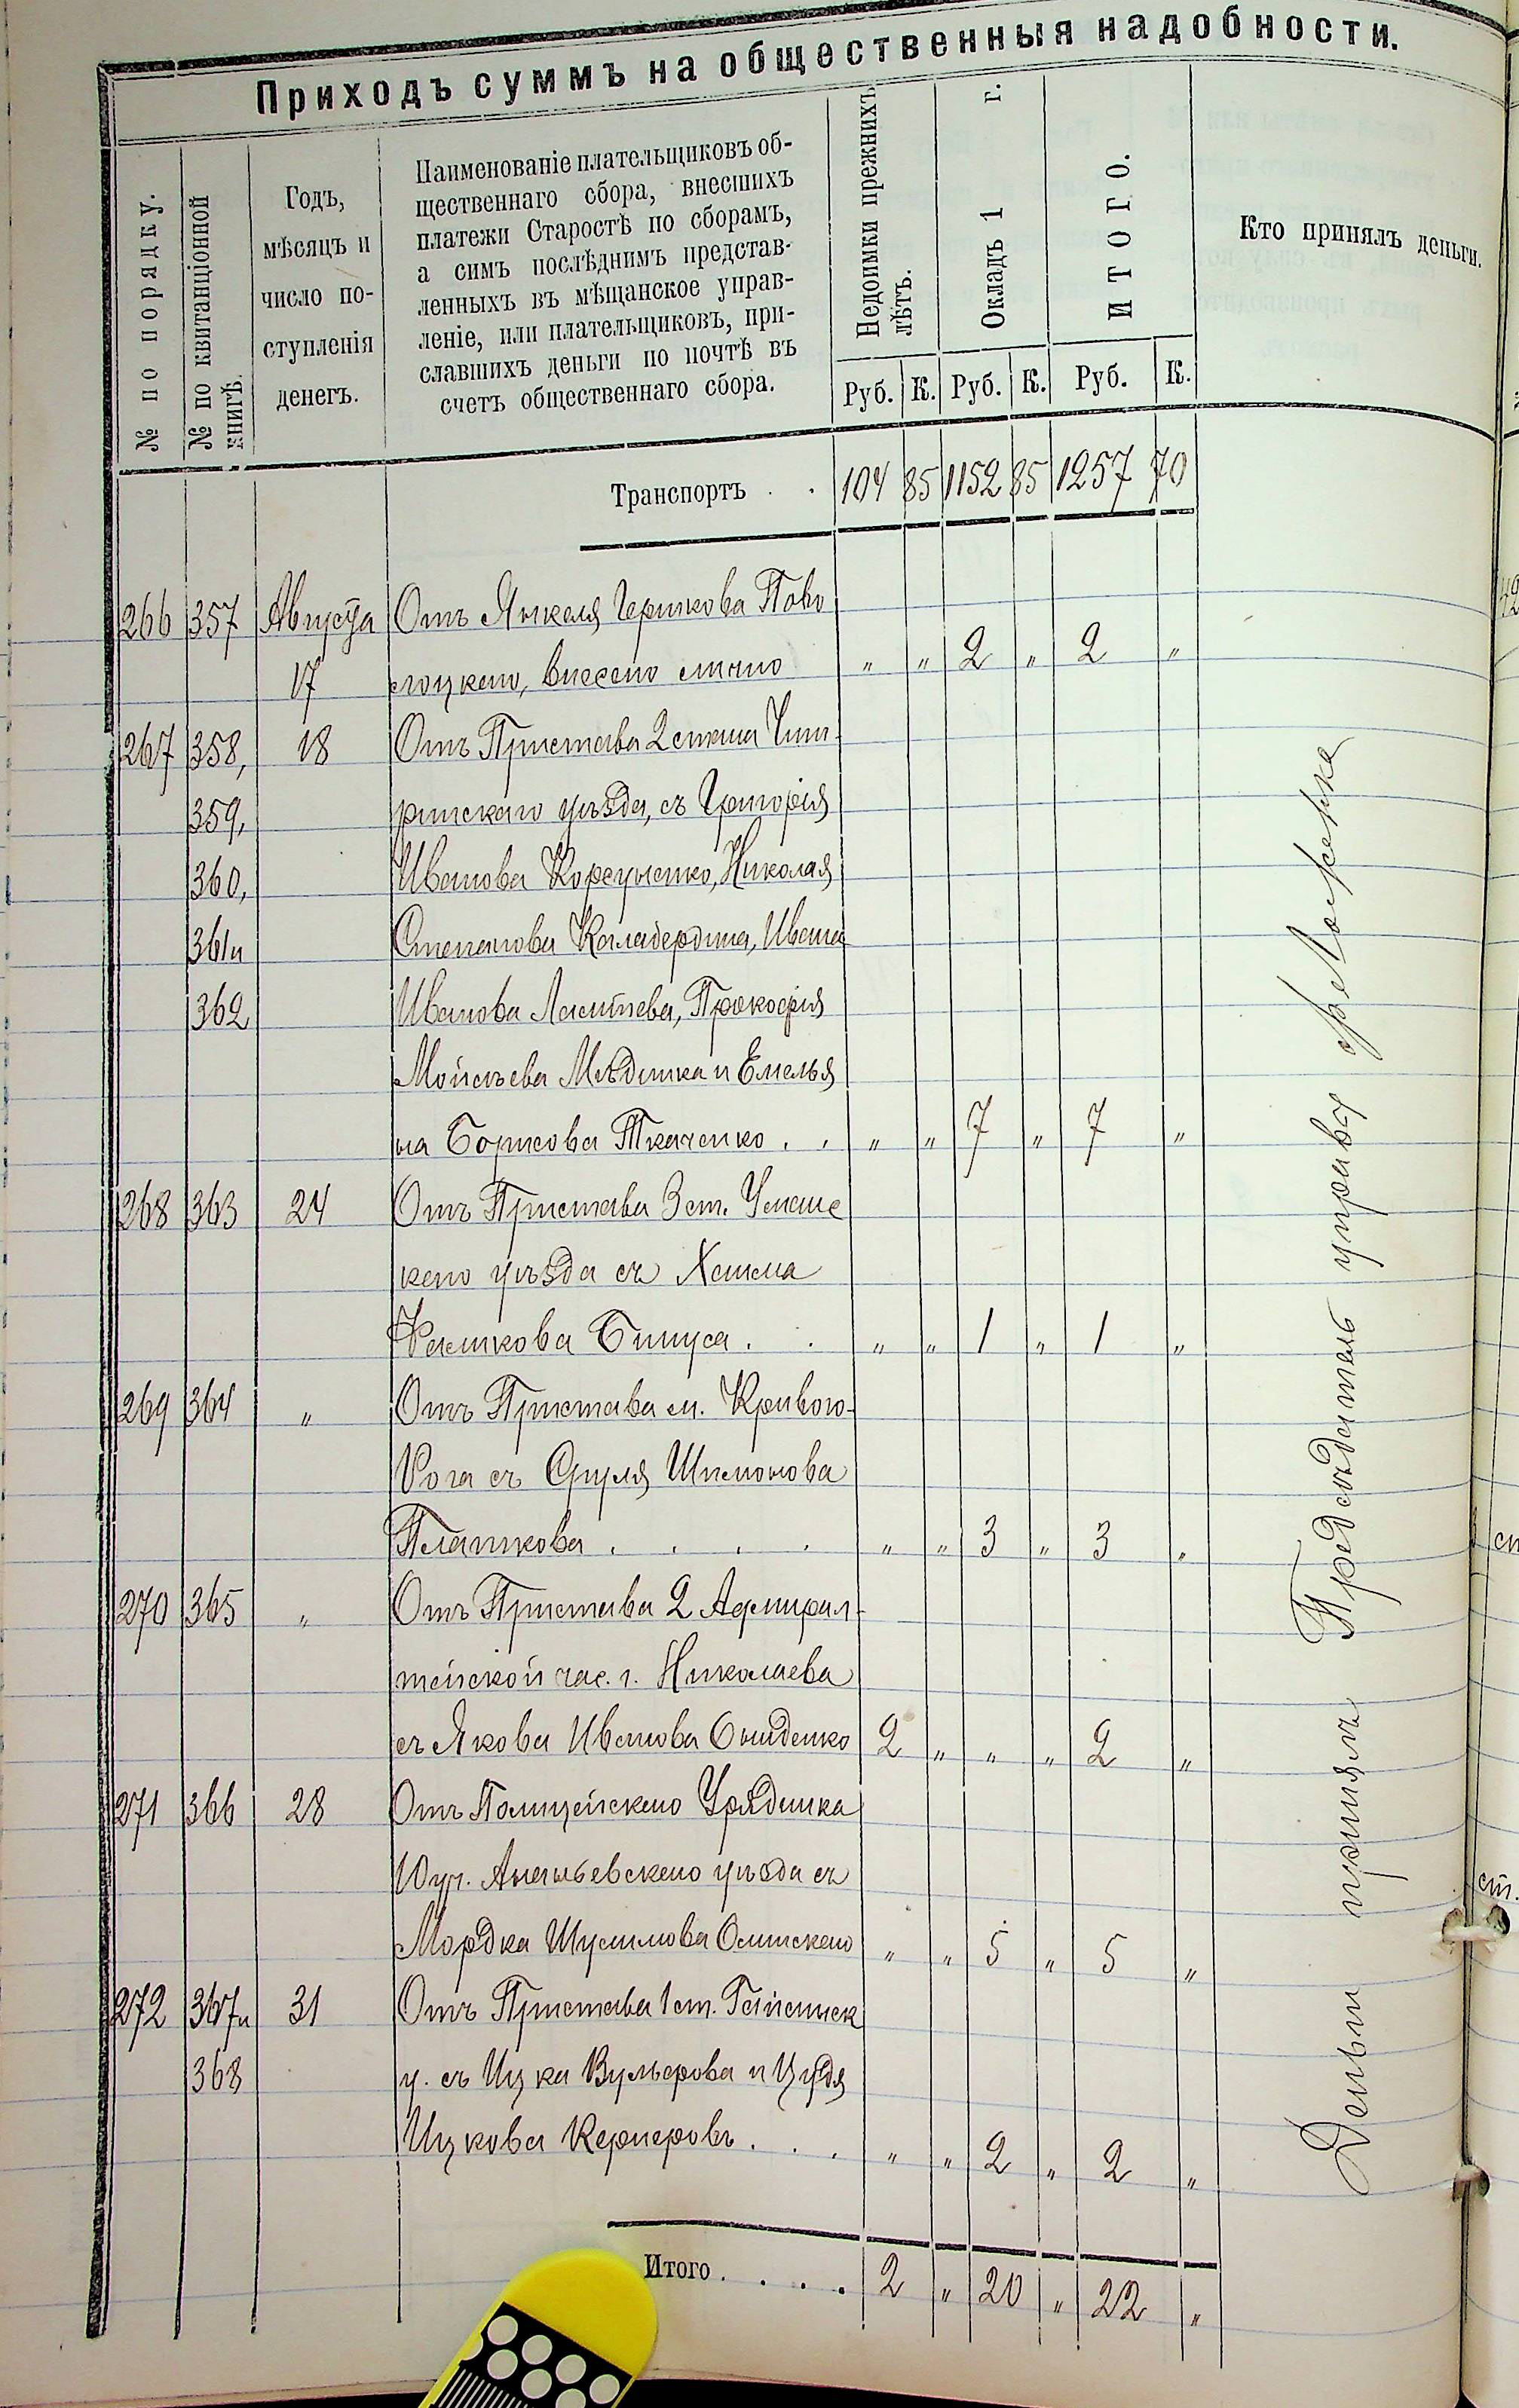 Приходъ суммъ на общественныя надобности.
№ по порядку.
№ по квитанціонной
книгѣ.
Годъ,
мѣсяцъ и
число по-
ступленія
денегъ.
Наименованіе плательщиковъ об-
щественнаго сбора, внесшихъ
платежи Старостѣ по сборамъ,
а симъ послѣднимъ представ-
ленныхъ въ мѣщанское управ-
леніе, или плательщиковъ, при-
славшихъ деньги по почтѣ въ
счетъ общественнаго сбора.
Недоимки прежнихъ
лѣтъ.
Окладъ 1 г.
ИТОГО.
Кто принялъ деньги.
Руб. К. Руб. К. Руб. К.
Транспортъ . . 104 85 1152 85 1257 70
266 357 Августа Отъ Янкеля Гершкова Пово
17 лоцкаго, внесено лично " " 2 " 2 "
267 358, 18 Отъ Пристава 2 стана Чиги-
359, ринскаго уѣзда, съ Григорія
360, Иванова Корсуненко, Николая
361 и Степанова Ивана
362 Иванова Прокофія
Мойсѣева Мѣдника и Емелья
на Борисова Ткаченко . . " " 7 " 7 "
268 363 24 Отъ Пристава 3 ст. Уманс
каго уѣзда съ Хаима
Фаликова . . " " 1 " 1 "
269 364 " Отъ Пристава м. Кривого-
Рога съ Сруля Шимонова
Платкова . . . . " " 3 " 3 "
270 365 " Отъ Пристава 2 Адмирал-
тейской час. г. Николаева
съ Якова Иванова 2 " " " 2 "
271 366 28 Отъ Полицейскаго Урядника
10 уч. Ананьевскаго уѣзда съ
Мордка " " 5 " 5 "
272 367 и 31 Отъ Пристава 1 ст. Гайсинск
368 у. съ Ицка Вульфова и
Ицкова . . . " " 2 " 2 "
Итого . . . . 2 " 20 " 22 "
Деньги принялъ Предсѣдатель управы